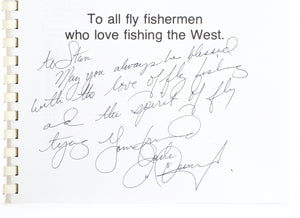 To all fly fishermen
who love fishing the West.
to Stan
May you always be blessed
with the love of fly fishing
and the spirit of fly
tying Your friend